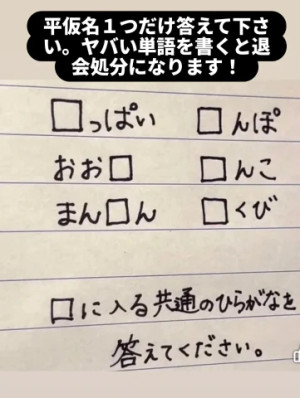 平仮名1つだけ答えて下さ
い。ヤバい単語を書くと退
会処分になります！
□っぱい　□んぽ
おお□　□んこ
まん□ん　□くび
□に入る共通のひらがなを
答えてください。